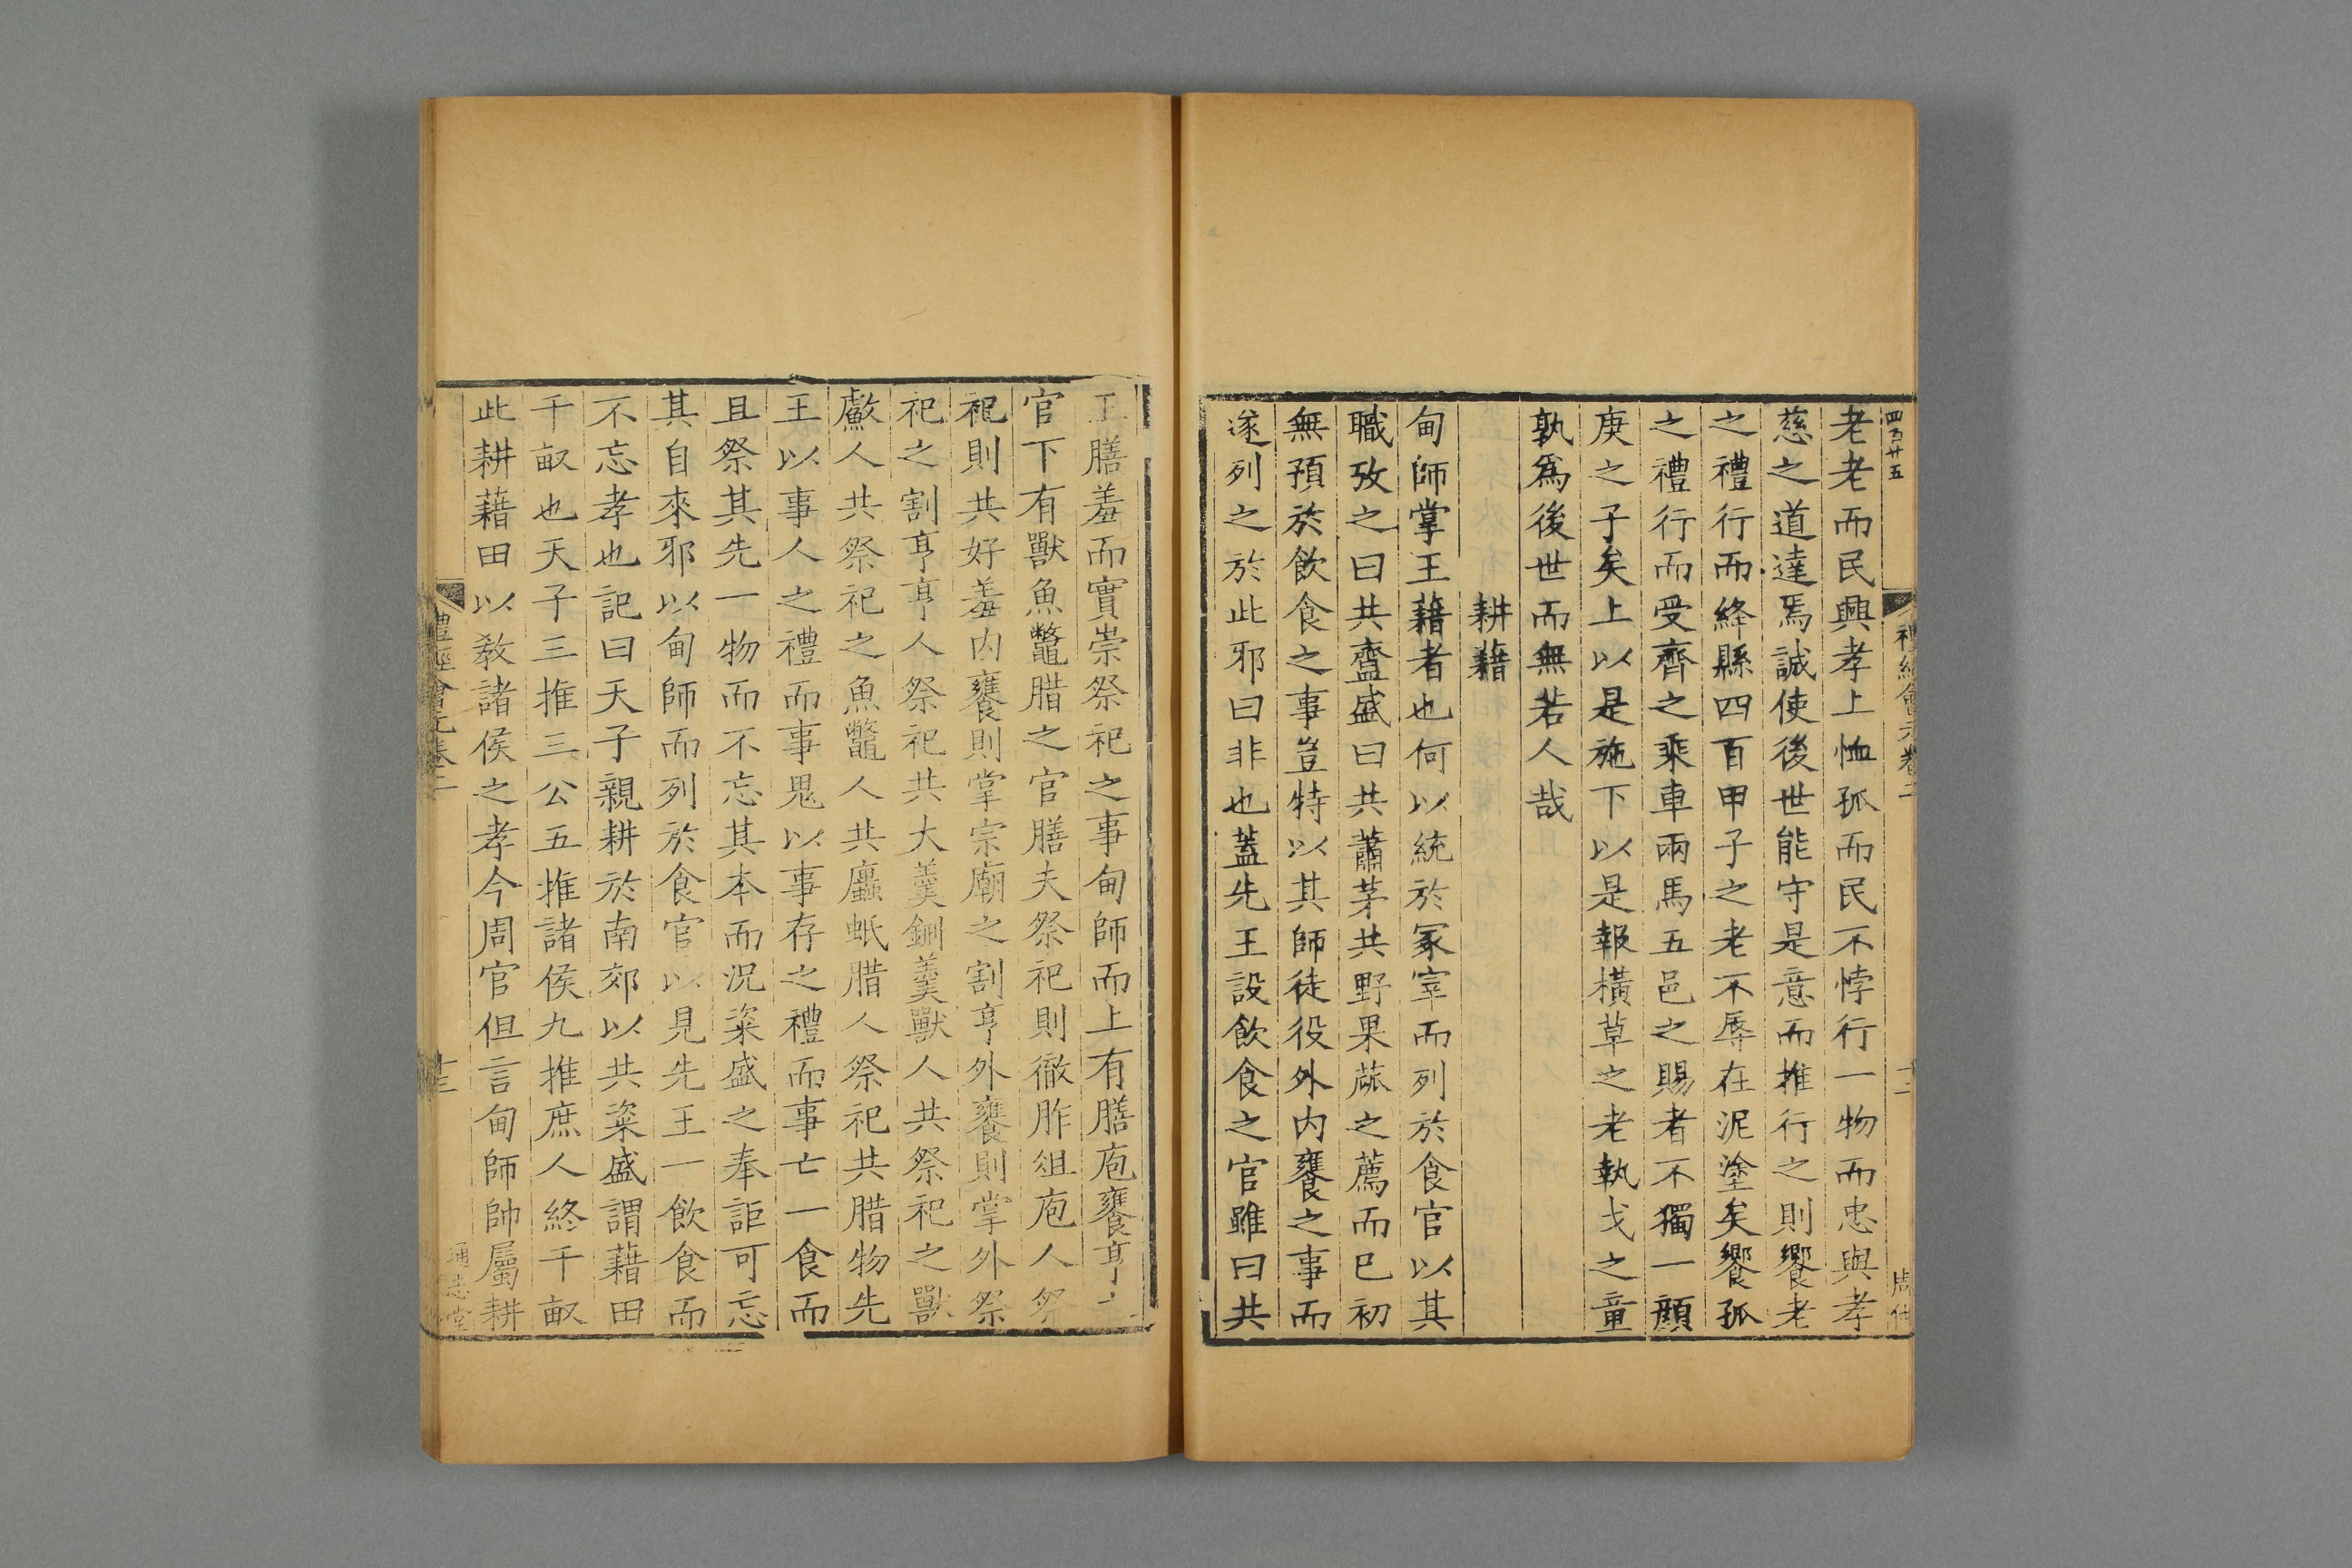 四百廿五
老老而民興孝上恤孤而民不悖行一物而忠與孝
慈之道達焉誠使後世能守是意而推行之則饗老
之禮行而絳縣四百甲子之老不辱在泥塗矣饗孤
之禮行而受齊之乘車兩馬五邑之賜者不獨一顔
庚之子矣上以是施下以是報橫草之老執戈之童
孰爲後世而無若人哉
耕藉
甸師掌王藉者也何以統於冢宰而列於食官以其
職攷之曰共齍盛曰共蕭茅共野果蓏之薦而已初
無預於飲食之事豈特以其師徒役外内饔之事而
遂列之於此邪曰非也蓋先王設飲食之官雖曰共
王膳羞而實崇祭祀之事甸師而上有膳庖饔亨之
官下有獸魚鼈腊之官膳夫祭祀則徹胙俎庖人祭
祀則共好羞内饔則掌宗廟之割亨外饔則掌外祭
祀之割亨亨人祭祀共大羹鉶羹獸人共祭祀之獸
䱷人共祭祀之魚鼈人共蠯蚳腊人祭祀共腊物先
王以事人之禮而事鬼以事存之禮而事亡一食而
且祭其先一物而不忘其本而況粢盛之奉詎可忘
其自來邪以甸師而列於食官以見先王一飲食而
不忘孝也記曰天子親耕於南郊以共粢盛謂藉田
千畝也天子三推三公五推諸侯九推庶人終千畝
此耕藉田以敎諸侯之孝今周官但言甸師帥屬耕
禮經會元卷二
十三
通志堂